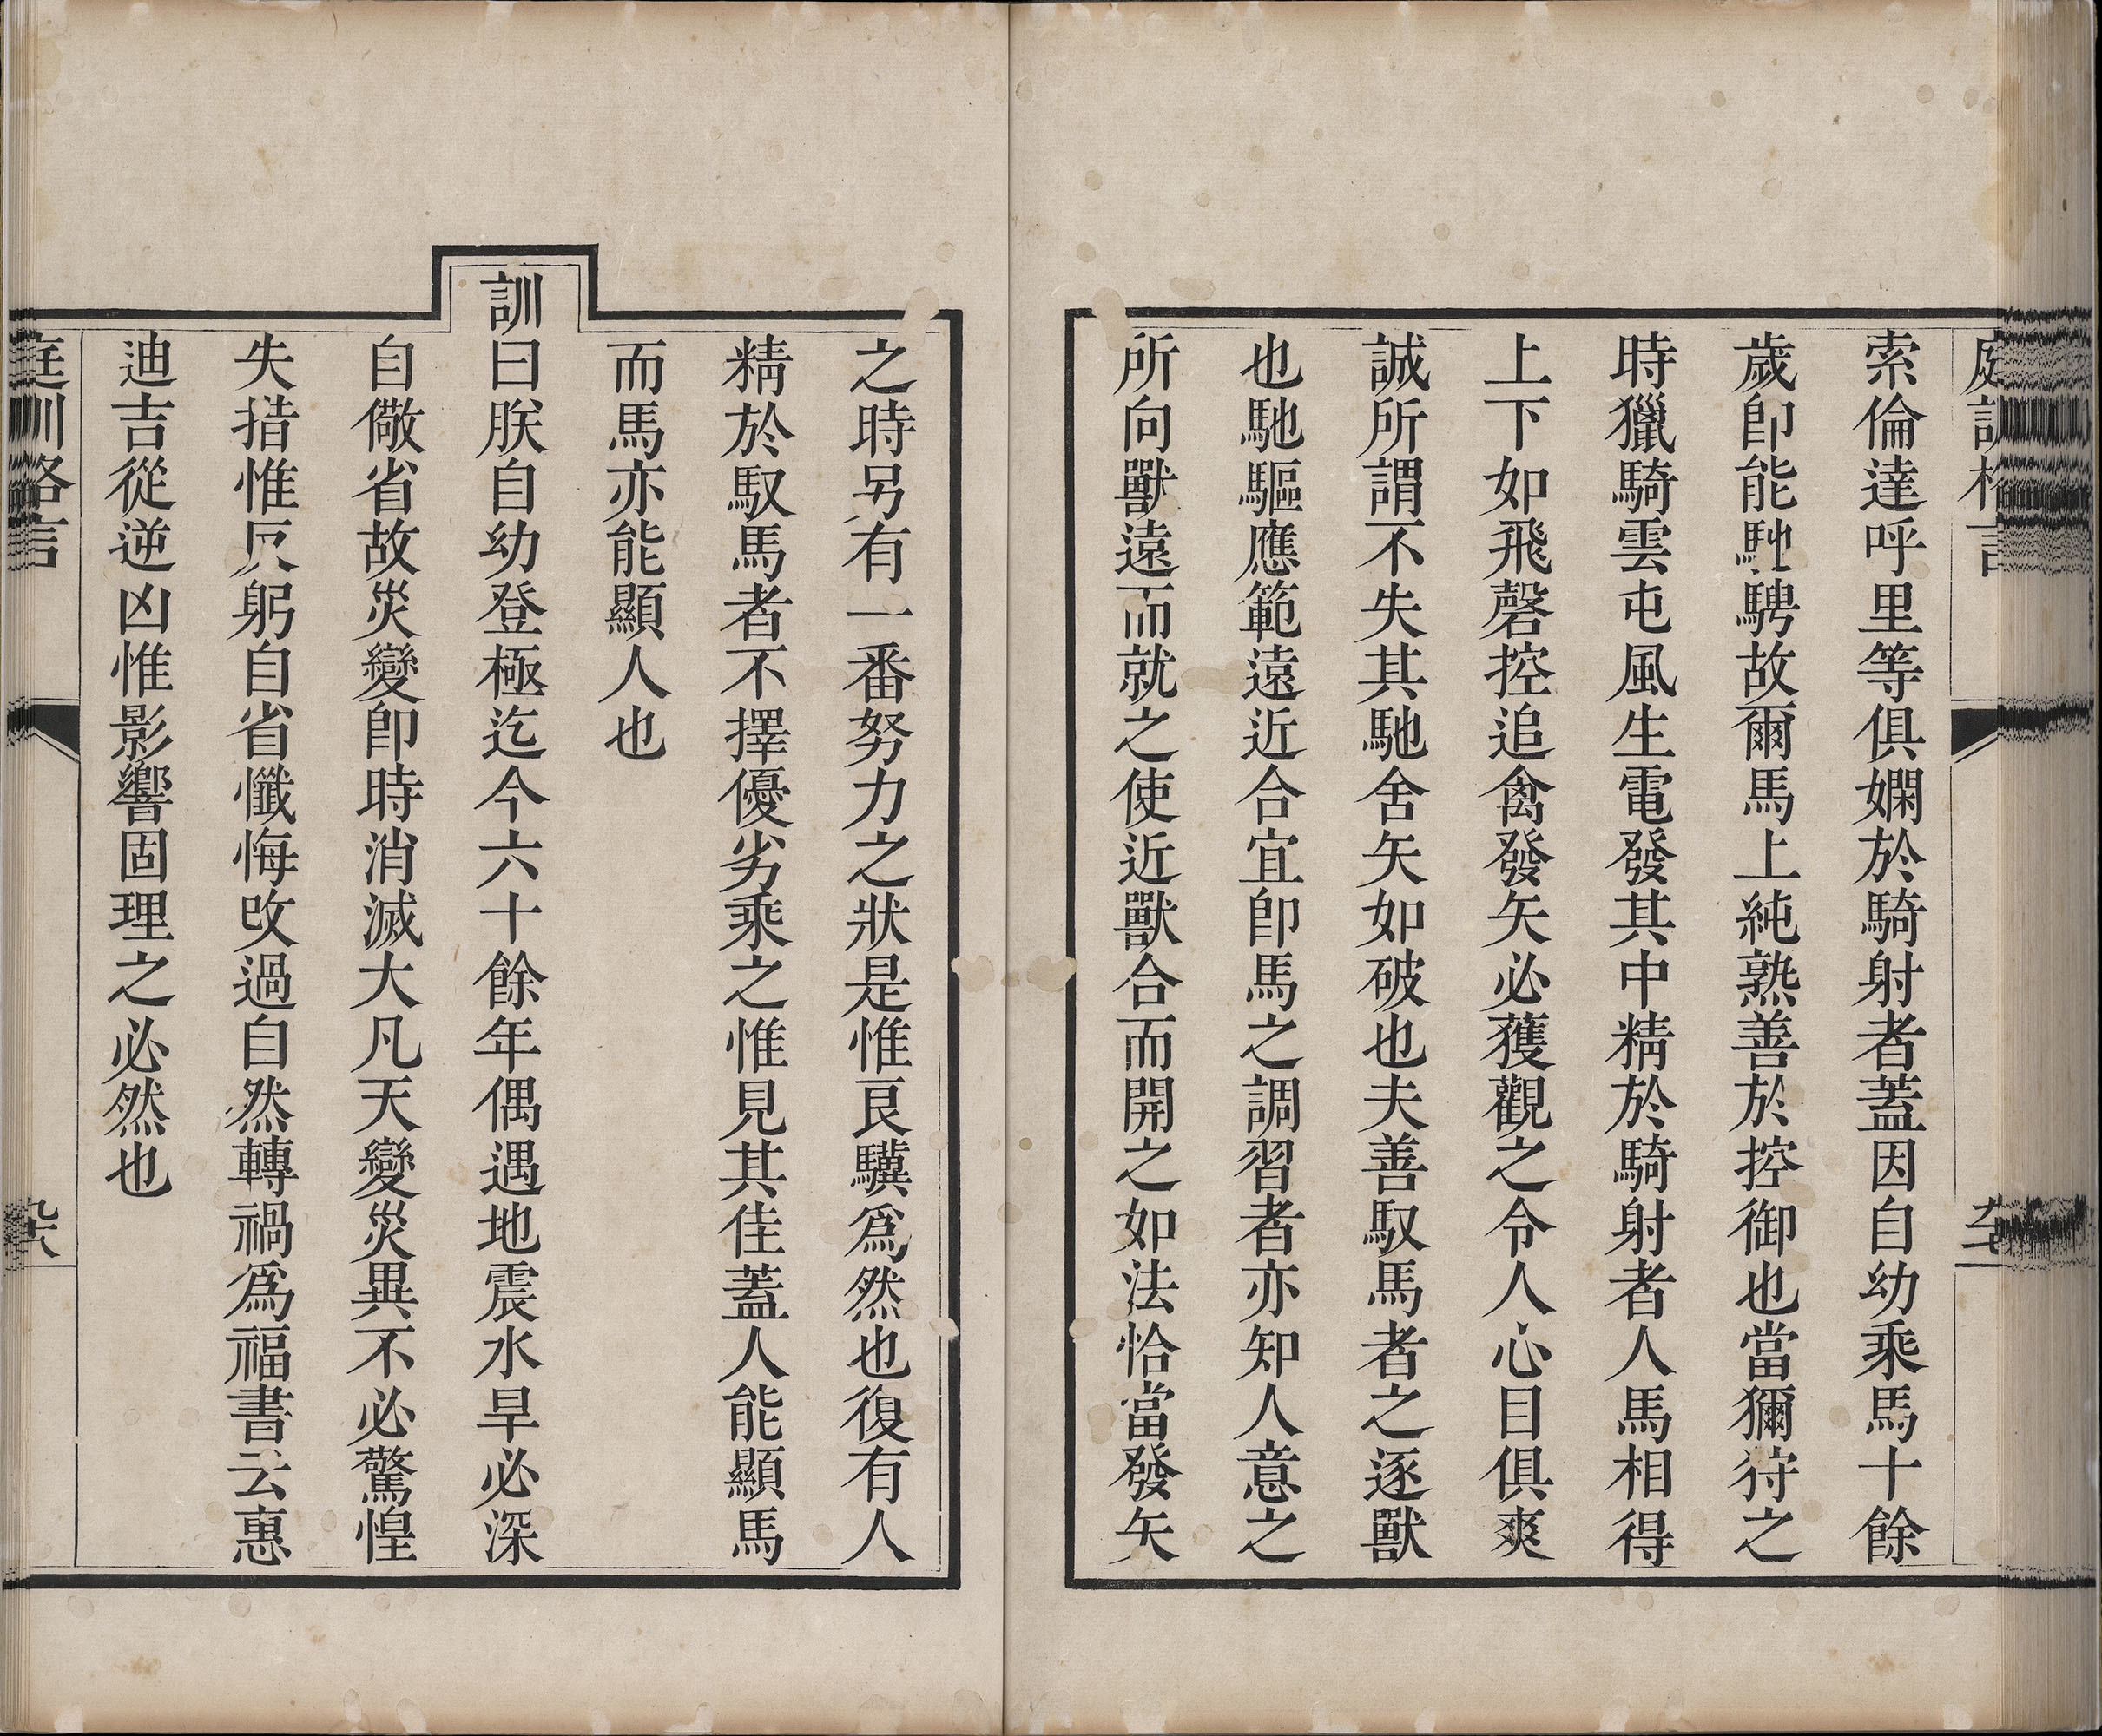 庭訓格言
索倫達呼里等俱嫻於騎射者蓋因自幼乘馬十餘
歲卽能馳騁故爾馬上純熟善於控御也當獮狩之
時獵騎雲屯風生電發其中精於騎射者人馬相得
上下如飛磬控追禽發矢必獲觀之令人心目俱爽
誠所謂不失其馳舍矢如破也夫善馭馬者之逐獸
也馳驅應範遠近合宜卽馬之調習者亦知人意之
所向獸遠而就之使近獸合而開之如法恰當發矢
之時另有一番努力之狀是惟良驥爲然也復有人
精於馭馬者不擇優劣乘之惟見其佳蓋人能顯馬
而馬亦能顯人也
訓曰朕自幼登極迄今六十餘年偶遇地震水旱必深
自儆省故災變卽時消滅大凡天變災異不必驚惶
失措惟反躬自省懺悔改過自然轉禍爲福書云惠
迪吉從逆凶惟影響固理之必然也
庭訓格言